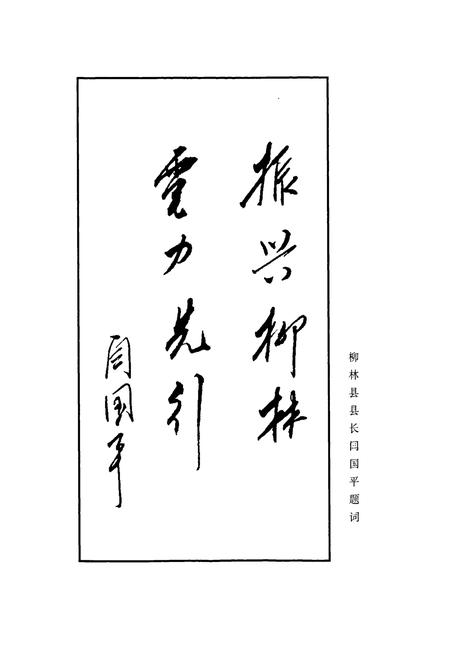 振兴柳林
電力先行
闫国平
柳林县县长闫国平题词